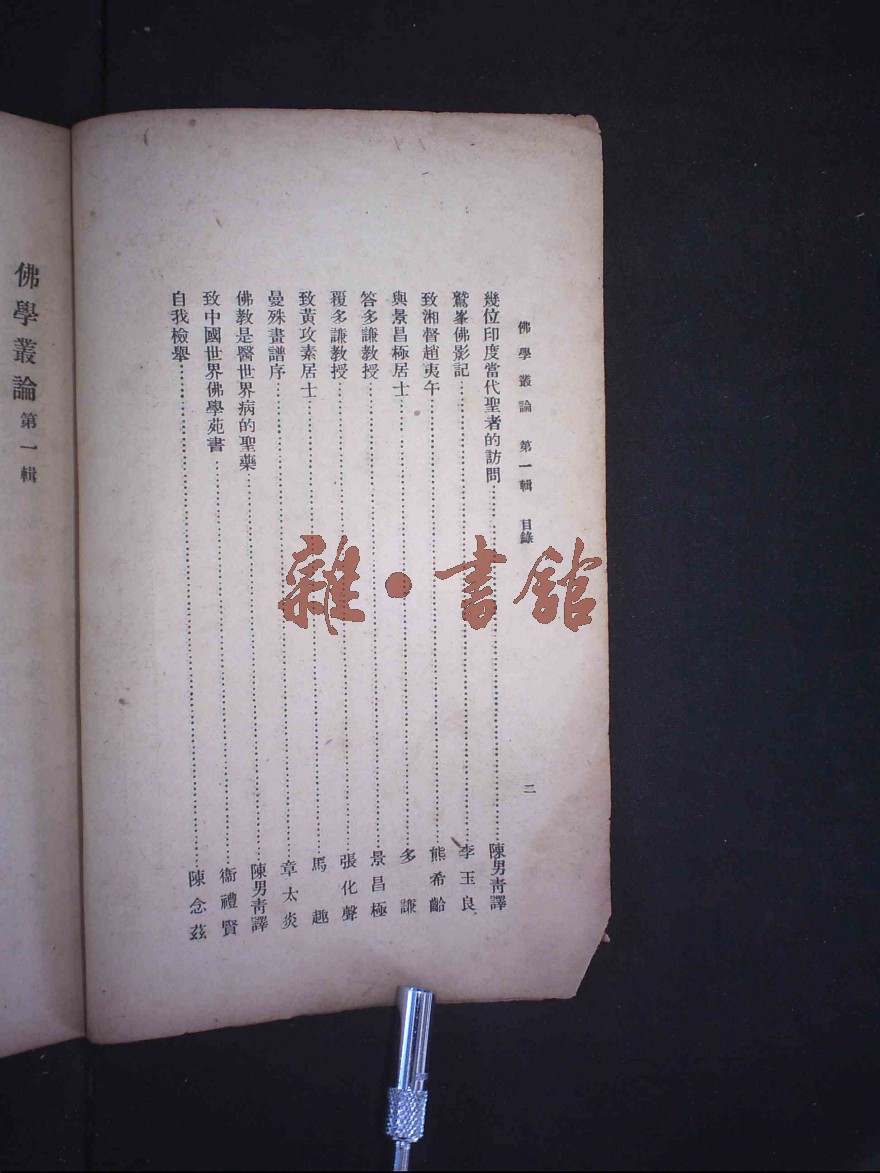 佛學叢論 第一輯 目錄
幾位印度當代聖者的訪問……陳男靑譯
鷲峯佛影記……李玉良
致湘督趙夷午……熊希齡
與景昌極居士……多謙
答多謙教授……景昌極
覆多謙教授……張化聲
致黃攻素居士……馬趣
曼殊畫譜序……章太炎
佛教是醫世界病的聖藥……陳男靑譯
致中國世界佛學苑書……衞禮賢
自我檢舉……陳念茲
二
佛學叢論 第一輯
雜·書館